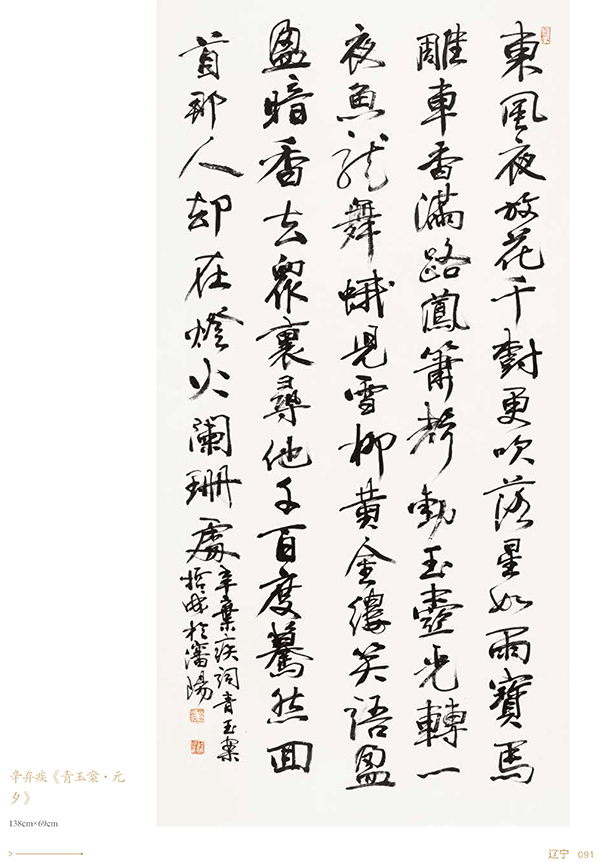 東風夜放花千樹更吹落星如雨寶馬
雕車香滿路鳳簫聲動玉壺光轉一
夜魚龍舞蛾兒雪柳黃金縷笑語盈
盈暗香去眾裏尋他千百度驀然回
首那人却在燈火闌珊處
辛棄疾詞青玉案
於瀋陽
辛弃疾《青玉案·元
夕》
138cm×69cm
辽宁 091